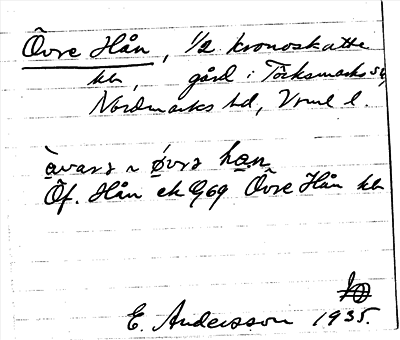 Övre Hån, 1/2 kronoskatte
hn, gård i Töcksmarks sn,
Nordmarks hd, Vrml l.
àvarɜ ~ øvrɜ hạn
Öf. Hån ek G69 Övre Hån hn
E. Andersson 1935.